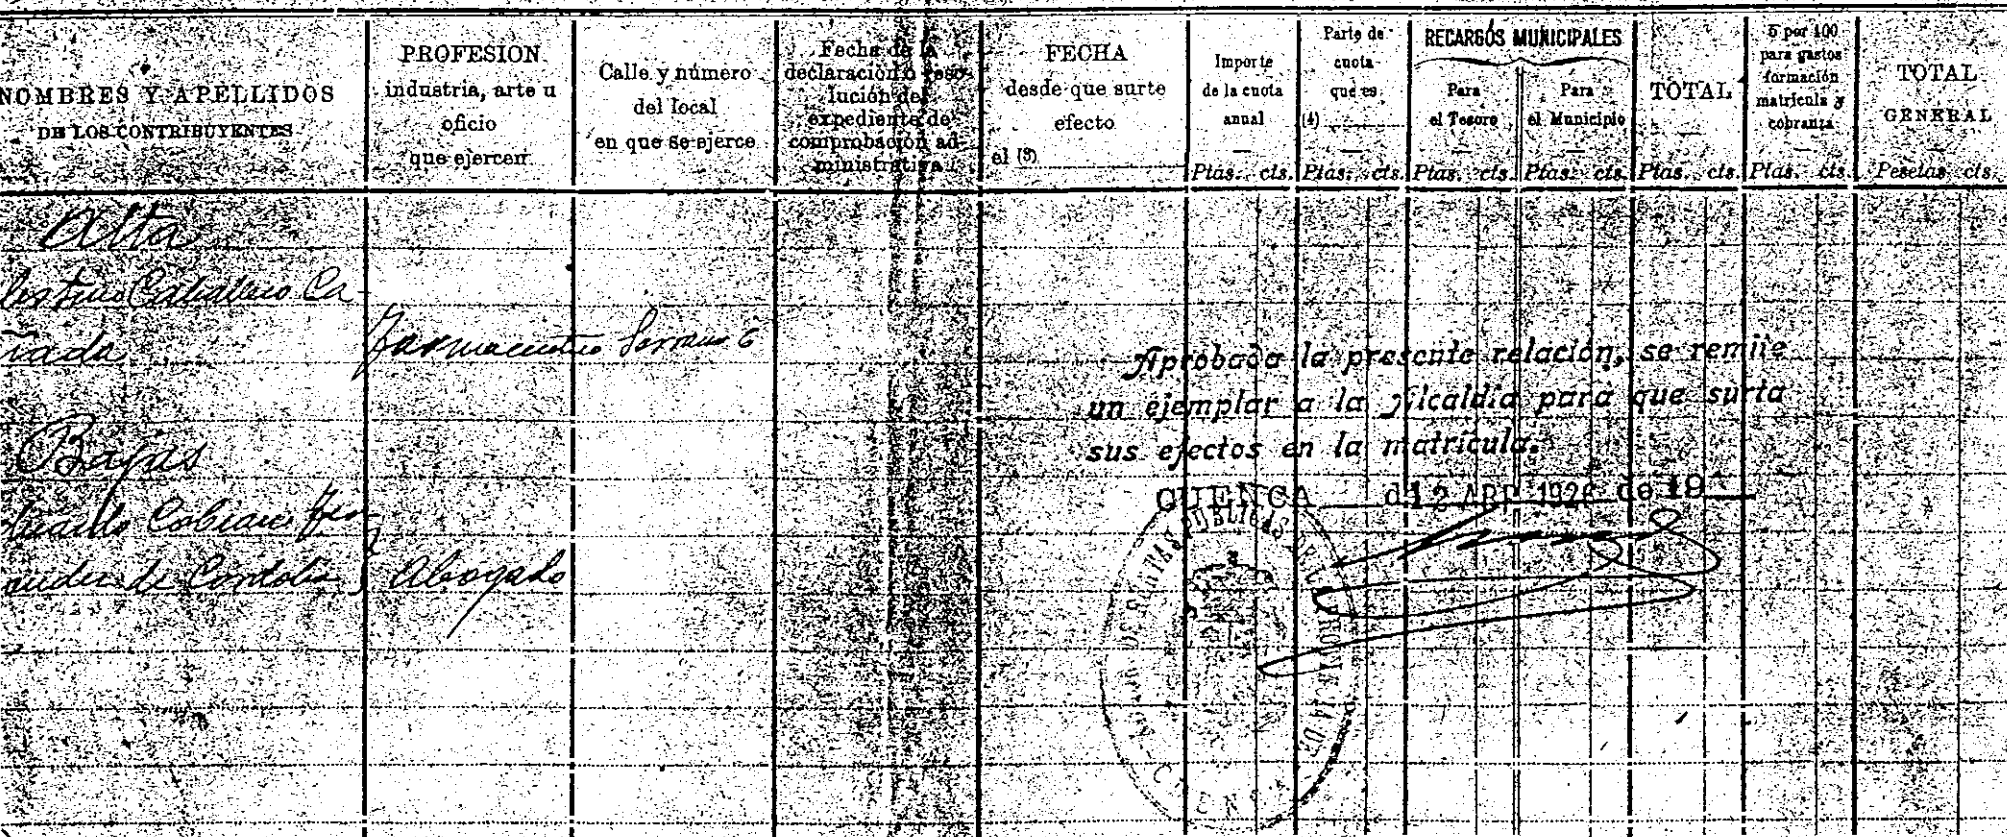 NOMBRES Y APELLIDOS
DE LOS CONTRIBUYENTES
PROFESION
industria, arte u
oficio
que ejercen
Calle y número
del local
en que se ejerce
Fecha de la
declaración o reso-
lución del
expediente de
comprobación ad-
ministrativa
FECHA
desde que surte
efecto
el (3)
Importe
de la cuota
anual
Ptas. cts.
Parte de
cuota
que es
(4)
Ptas. cts.
RECARGOS MUNICIPALES
Para
el Tesoro
Ptas. cts.
Para
el Municipio
Ptas. cts.
TOTAL
Ptas. cts.
5 por 100
para gastos
formación
matrícula y
cobranza
Ptas. cts.
TOTAL
GENERAL
Pesetas cts.
Alta
lestino Caballero Ca
ñada Farmaceutico Serrano 6
Aprobada la presente relación, se remite
un ejemplar a la Alcaldía para que surta
sus efectos en la matrícula.
Bajas
CUENCA d 12 ABR 1926 de 19
Cobian
de Contolia Abogado
PUBLICAS
CUENCA